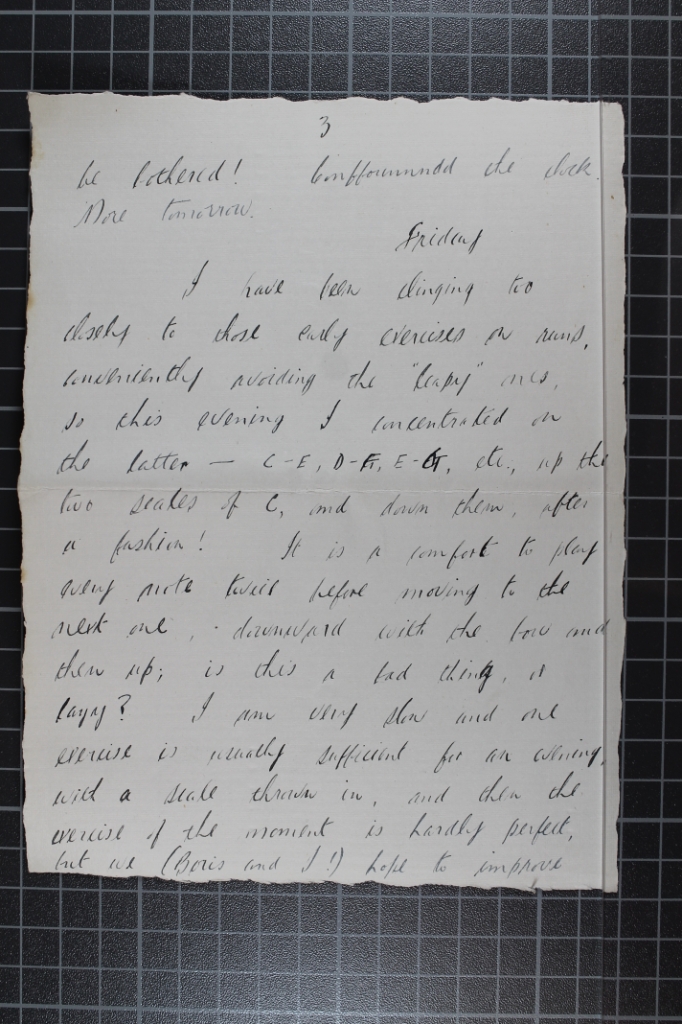 3
be bothered! Conffoummdd the clock.
More tomorrow.
Friday
I have been clinging too
closely to those early exercises on
conveniently avoiding the "leapy" ones,
so this evening I concentrated on
the latter — C-E, D-F, E-G, etc., up the
two scales of C, and down them, after
a fashion! It is a comfort to play
every note twice before moving to the
next one, - downward with the bow and
then up; is this a bad thing, or
lazy? I am very slow and one
exercise is usually sufficient for an evening,
with a scale thrown in, and then the
exercise of the moment is hardly perfect,
but we (Boris and I!) hope to improve